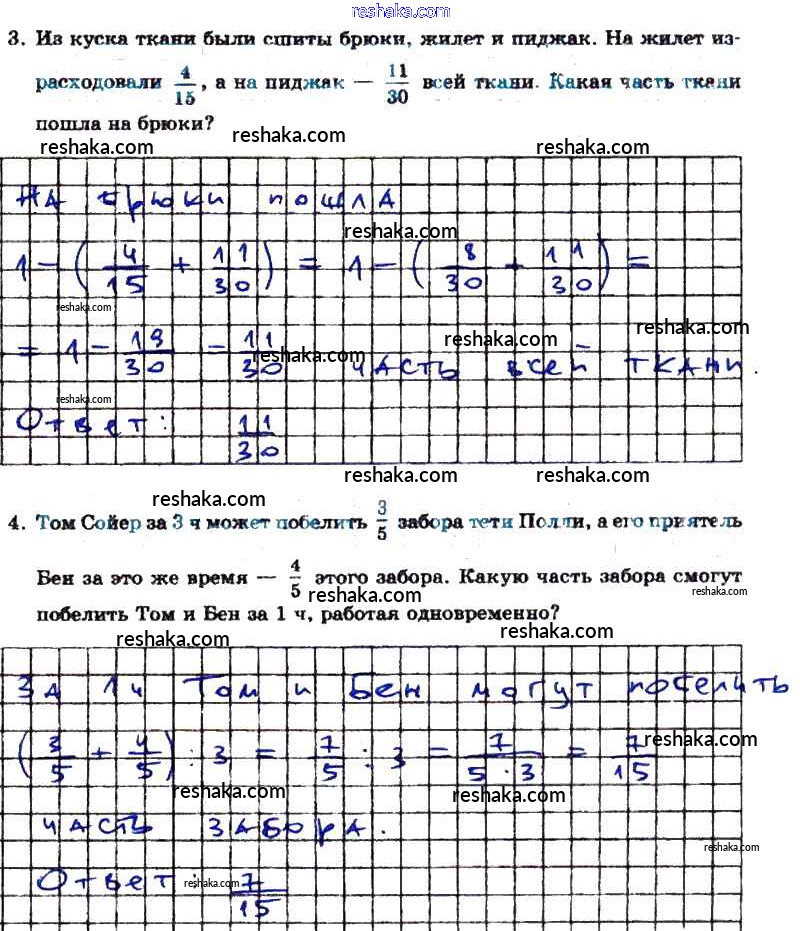 reshaka.com
3. Из куска ткани были сшиты брюки, жилет и пиджак. На жилет из-
расходовали 4/15, а на пиджак — 11/30 всей ткани. Какая часть ткани
пошла на брюки?
reshaka.com reshaka.com reshaka.com
На брюки пошла
reshaka.com
1 - (4/15 + 11/30) = 1 - (8/30 + 11/30) =
reshaka.com reshaka.com
= 1 - 19/30 - 11/30 часть всей ткани.
reshaka.com reshaka.com
reshaka.com
Ответ: 11/30
reshaka.com reshaka.com
reshaka.com
4. Том Сойер за 3 ч может побелить 3/5 забора тети Полли, а его приятель
Бен за это же время — 4/5 этого забора. Какую часть забора смогут
reshaka.com reshaka.com reshaka.com
побелить Том и Бен за 1 ч, работая одновременно?
reshaka.com reshaka.com
За 1ч Том и Бен могут побелить
(3/5 + 4/5) : 3 = 7/5 : 3 = 7/(5 · 3) = 7/15
reshaka.com
reshaka.com reshaka.com
часть забора.
reshaka.com
Ответ: 7/15
reshaka.com